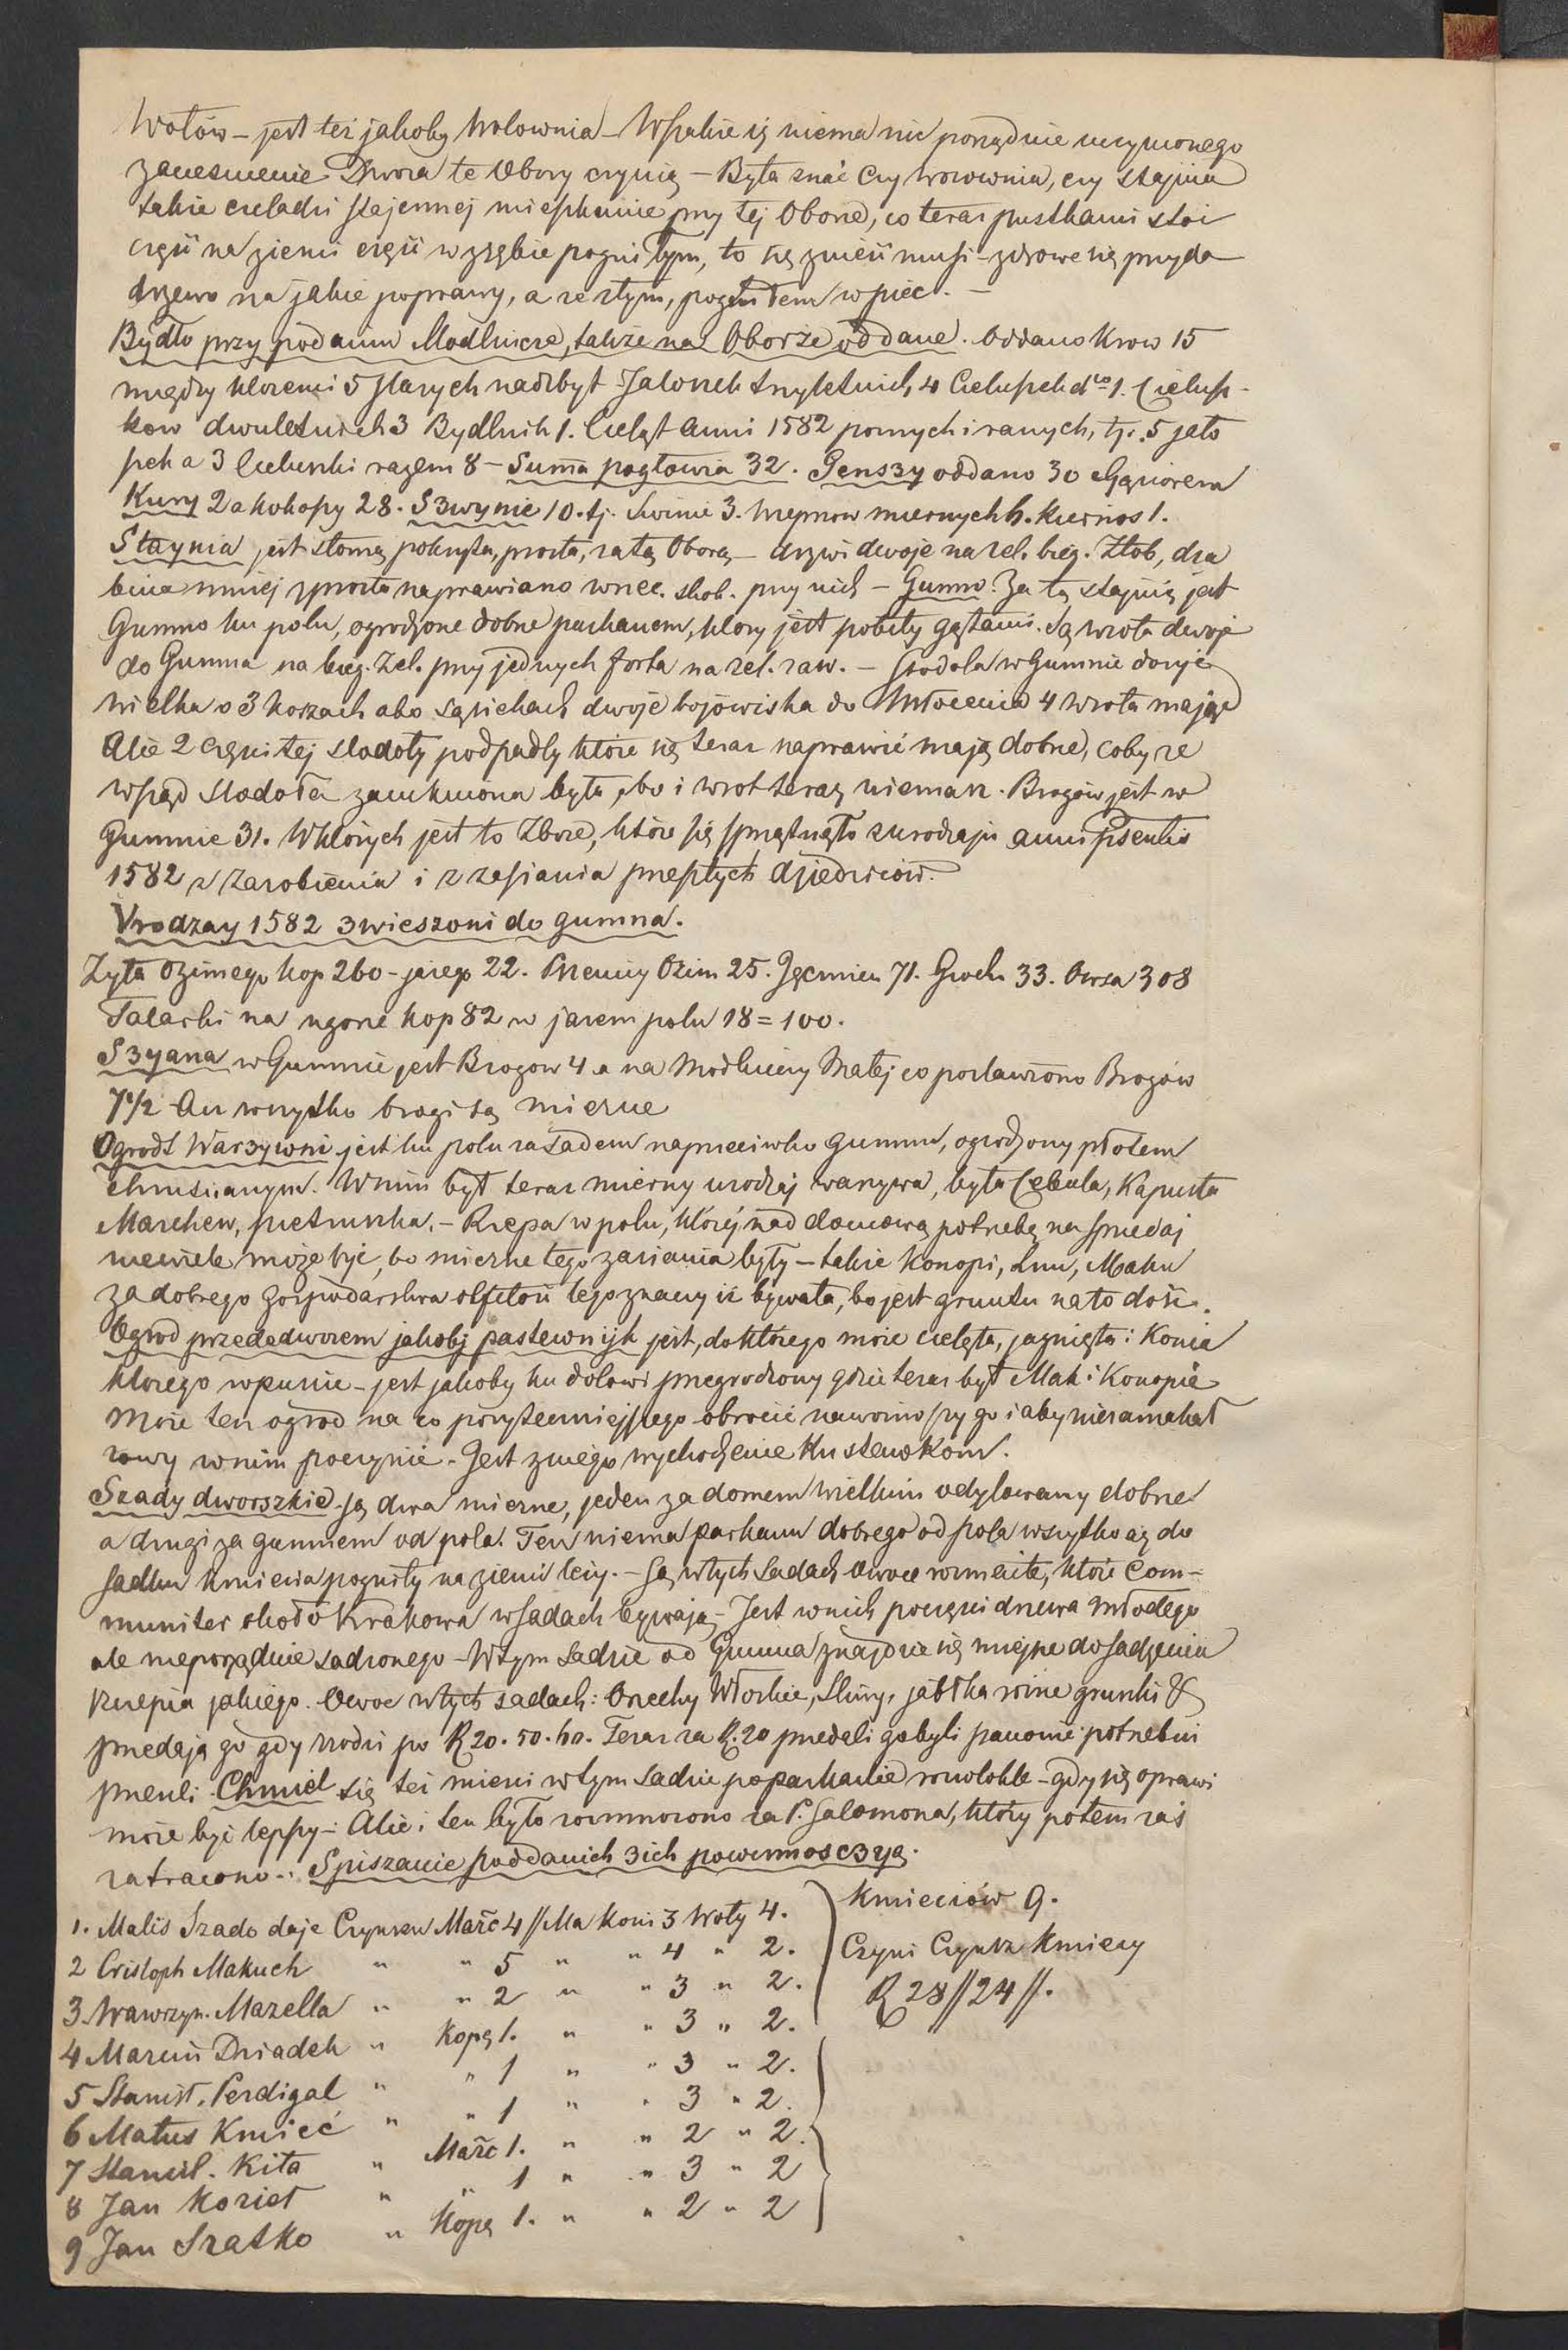 Wołów – jest też jakoby Wołownia – Wszakże iż niema nic porządnie uczynionego
zacieśnienie Dwora te Obory czynią – Była znać czy wozownia, czy stajnia
także czeladzi stajennej mieszkanie przy tej Oborze, co teraz pustkami stoi
częśi na ziemi częśi w zrębie pogniłym, to się znieśi musi – zdrowe się przyda
drzewo na jakie poprawy, a ze złym, pogniłem w piec. –
Bydło przy podaniu Modlnicze, także na Oborze oddane. Oddano Krow 15
między ktoremi 5 starych nadzbyt Jałoszek trzyletnich 4 Cieluszek dto 1. Cielusz-
kow dwuletnich 3 Bydlnik 1. Cieląt Anni 1582 poznych i ranych, tj. 5 jało
szek a 3 Cieluszki razem 8 – Suma pogłowia 32. Genszy oddano 30 z Gąsiorem
Kury 2 a kokoszy 28. Szwynie 10. tj. Swinie 3. Wieprzow miernych 6. Kiernos 1.
Staynia jest słomą pokryta, prosta, za tą Oborą – drzwi dwoje na żel. bieg. Żłob, dra
bina mniej sprosta naprawiano wrzec. skob. przy nich – Gumno. Za tą stajnią jest
Gumno ku polu, ogrodzone dobrze parkanem, ktory jest pobity gątami. Są wrota dwoje
do Gumna na bieg. żel. przy jednych forta na żel. zaw. – Stodoła w Gumnie dosyć
wielka o 3 korzach abo sąsiekach dwoje bojowiska do Młocenia 4 wrota mając
Ale 2 częśi tej stodoły podpadły które się teraz naprawić mają dobrze, coby ze
wsząd stodoła zamkniona była, bo i wrot teraz niemasz. Brogów jest w
Gumnie 31. W których jest to Zboże, które się sprzątnęło z urodzaju anni psentis
1582 z zarobienia i z zasiania przeszłych dziedziców.
Vrodzay 1582 zwieszoni do gumna.
Żyta Ozimego kop 260 – jarego 22. Pszenicy Ozim 25. Jęczmien 71. Groch 33. Owsa 308
Tatarki na ugorze kop 82 w jarem polu 18 = 100.
Szyana w Gumnie jest Brogow 4 a na Modlnicy Małej co postawiono Brogów
7½ Ale wszytko brogi są mierne
Ogrodt Warzywni jest ku polu za sadem naprzeciwko gumnu, ogrodzony płotem
chruścianym. W nim był teraz mierny urodzaj warzywa, była Cebula, Kapusta
Marchew, pietruszka, – Rzepa w polu, której nad domową potrzebę na sprzedaj
niewiele może być, bo mierne tego zasiania były – także Konopi, Lnu, Maku
za dobrego gospodarstwa obfitość tego znaczy iż bywała, bo jest gruntu na to dość.
Ogrod przededworem jakobj pastewnijk jest, do którego może cielęta, jagnięta i Konia
ktorego wpuście – jest jakoby ku dołowi przegrodzony gdzie teraz był Mak i Konopie
Może ten ogrod na co pożyteczniejszego obrocić nawoziwszy go i aby nie zamakał
rowy w nim poczynić – Jest z niego wychodzenie Ku stawkom.
Szady dworszkie są dwa mierne, jeden za domem wielkim odylowany dobrze
a drugi za gumnem od pola. Ten niema parkanu dobrego od pola wszytko aż do
sadku kmiecia pogniły na ziemi leży. – Są w tych sadach Owoce rozmaite, które Com-
muniter około Krakowa w sadach bywają – Jest w nich poczęści drzewa młodego
ale nieporządnie sadzonego – W tym sadzie od Gumna znajdzie się miejsce do sadzenia
szczepia jakiego. Owoc w tych sadach: Orzechy Włoskie, Śliwy, jabłka rożne gruszki &
przedają go gdy zrodzi po R 20. 50. 60. Teraz za R. 20 przedali go byli panowie potrzebni
przeuli. Chmiel się też mieni w tym sadzie po parkanie rozwlokłe – gdy się oprawi
może być lepszy – Ale i ten było rozmnożono za P. Salomona, który potem zaś
zatracono –: Spiszanie poddanich z ich powinnosczyą.
1. Malis Szado daje Czynszu Marc 4 // Ma Koni 3 Woły 4.
2 Cristoph Makuch " " 5 " " 4 " 2.
3 Wawrzyn. Mazella " " 2 " " 3 " 2.
4 Marcin Dziadek " Kopę 1. " " 3 " 2.
5 Stanisł. Perdigal " " 1 " " 3 " 2.
6 Matus Kmieć " " 1 " " 3 " 2.
7 Stanisl. Kita " Marc 1. " " 2 " 2.
8 Jan Kozieł " " 1 " " 3 " 2
9 Jan Szatko " Kopę 1. " " 2 " 2
Kmieciów 9.
Czyni Czynsz Kmiecy
R 28 // 24 //.